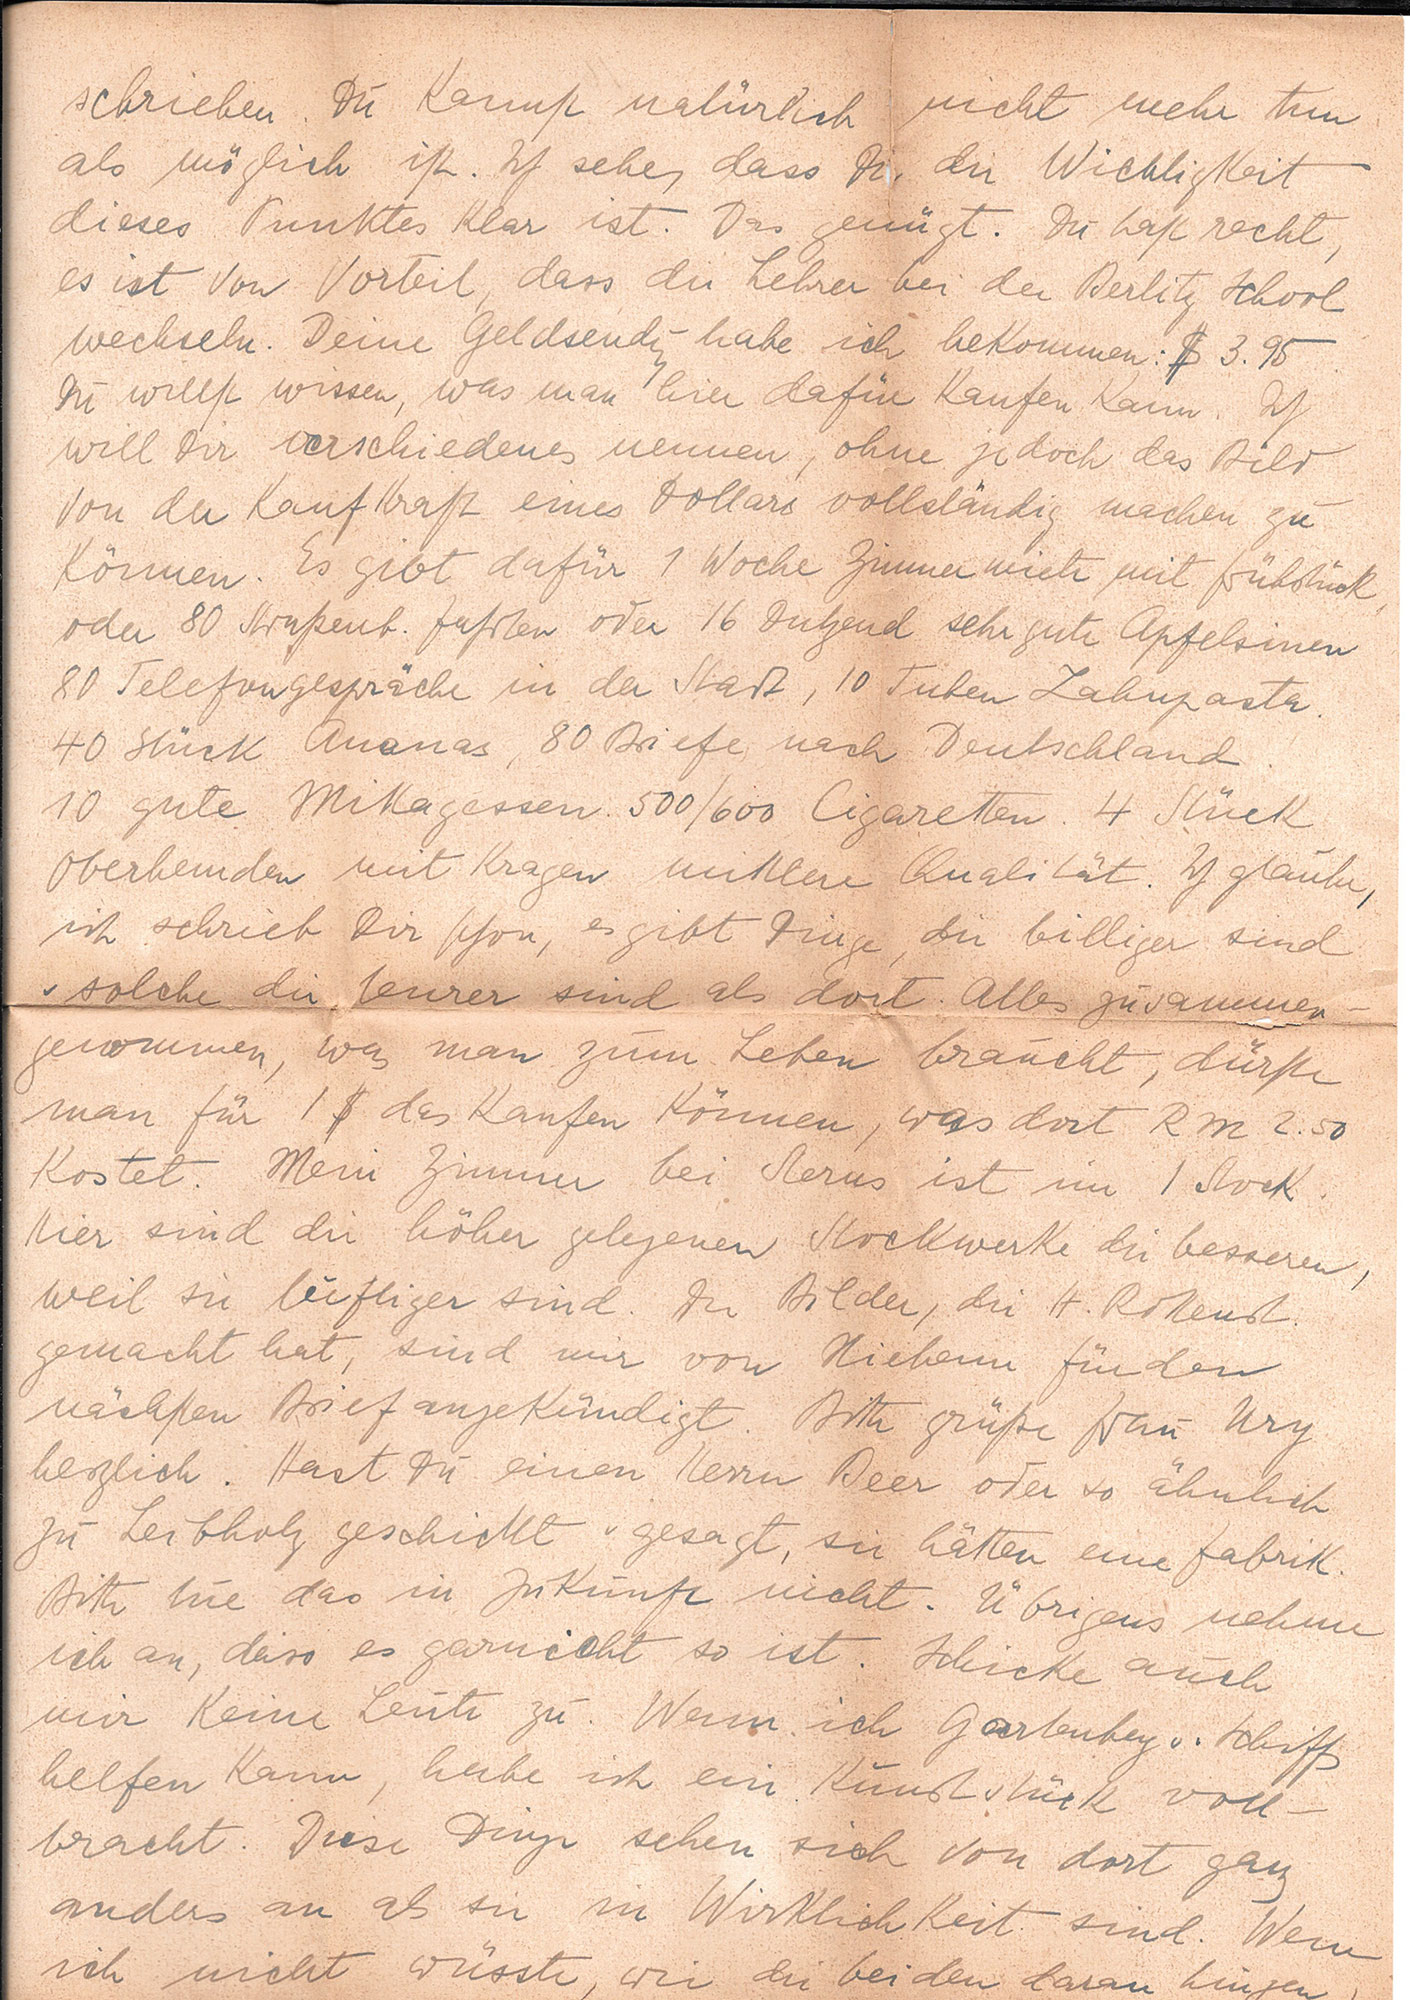 schrieben. Du kannst natürlich nicht mehr tun
als möglich ist. Ich sehe, dass Dir die Wichtigkeit
dieses Punktes klar ist. Das genügt. Du hast recht,
es ist von Vorteil, dass die Lehrer bei der Berlitz School
wechseln. Deine Geldsendg habe ich bekommen: $ 3.95
Du willst wissen, was man hier dafür kaufen kann. Ich
will Dir verschiedenes nennen, ohne jedoch das Bild
von der Kaufkraft eines Dollars vollständig machen zu
können. Es gibt dafür 1 Woche Zimmermiete mit Frühstück,
oder 80 Straßenb. fahrten oder 16 Dutzend sehr gute Apfelsinen
80 Telefongespräche in der Stadt, 10 Tuben Zahnpasta.
40 Stück Ananas, 80 Briefe nach Deutschland.
10 gute Mittagessen. 500/600 Cigaretten. 4 Stück
Oberhemden mit Kragen mittlere Qualität. Ich glaube,
ich schrieb Dir schon, es gibt Dinge, die billiger sind
u solche die teurer sind als dort. Alles zusammen-
genommen, was man zum Leben braucht, dürfte
man für 1 $ das kaufen können, was dort RM 2.50
kostet. Mein Zimmer bei Sterns ist im 1 Stock.
Hier sind die höher gelegenen Stockwerke die besseren,
weil sie luftiger sind. Die Bilder, die H. Rottenst.
gemacht hat, sind mir von für den
nächsten Brief angekündigt. Bitte grüße Frau Ury
herzlich. Hast Du einen Herrn Beer oder so ähnlich
zu Leibholz geschickt u gesagt, sie hätten eine Fabrik.
Bitte tue das in Zukunft nicht. Übrigens nehme
ich an, dass es garnicht so ist. Schicke auch
mir keine Leute zu. Wenn ich Gartenberg u. Schiff
helfen kann, habe ich ein Kunststück voll-
bracht. Diese Dinge sehen sich von dort ganz
anders an als sie in Wirklichkeit sind. Wenn
ich nicht wüsste, wie die beiden daran hingen,